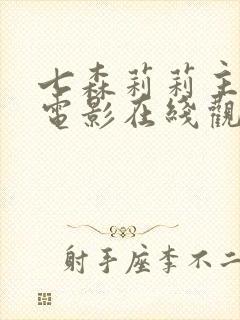 七森莉莉主
電影在綫觀
射手座李不二